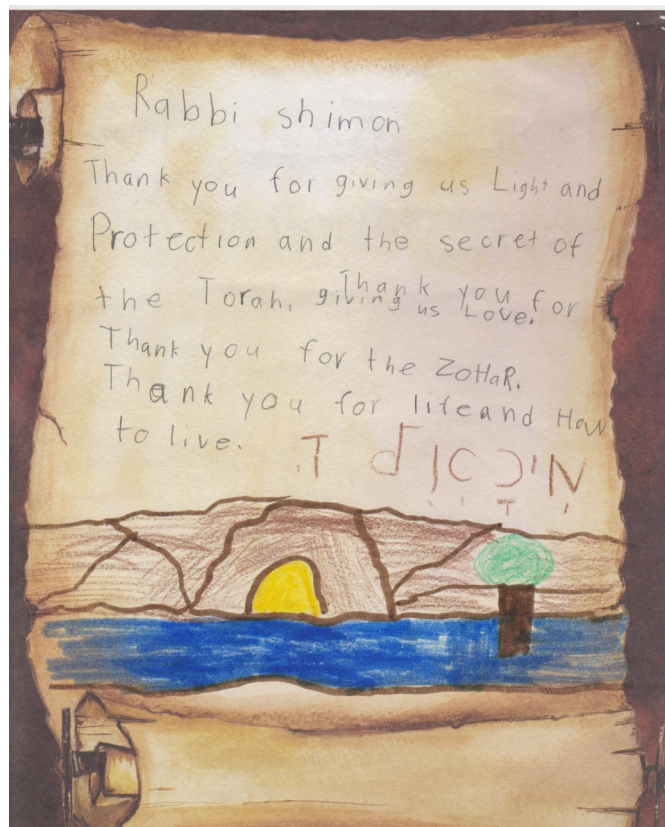 Rabbi shimon
Thank you for giving us Light and
Protection and the secret of
the Torah. Thank you for
giving us Love.
Thank you for the ZoHaR.
Thank you for life and How
to live.